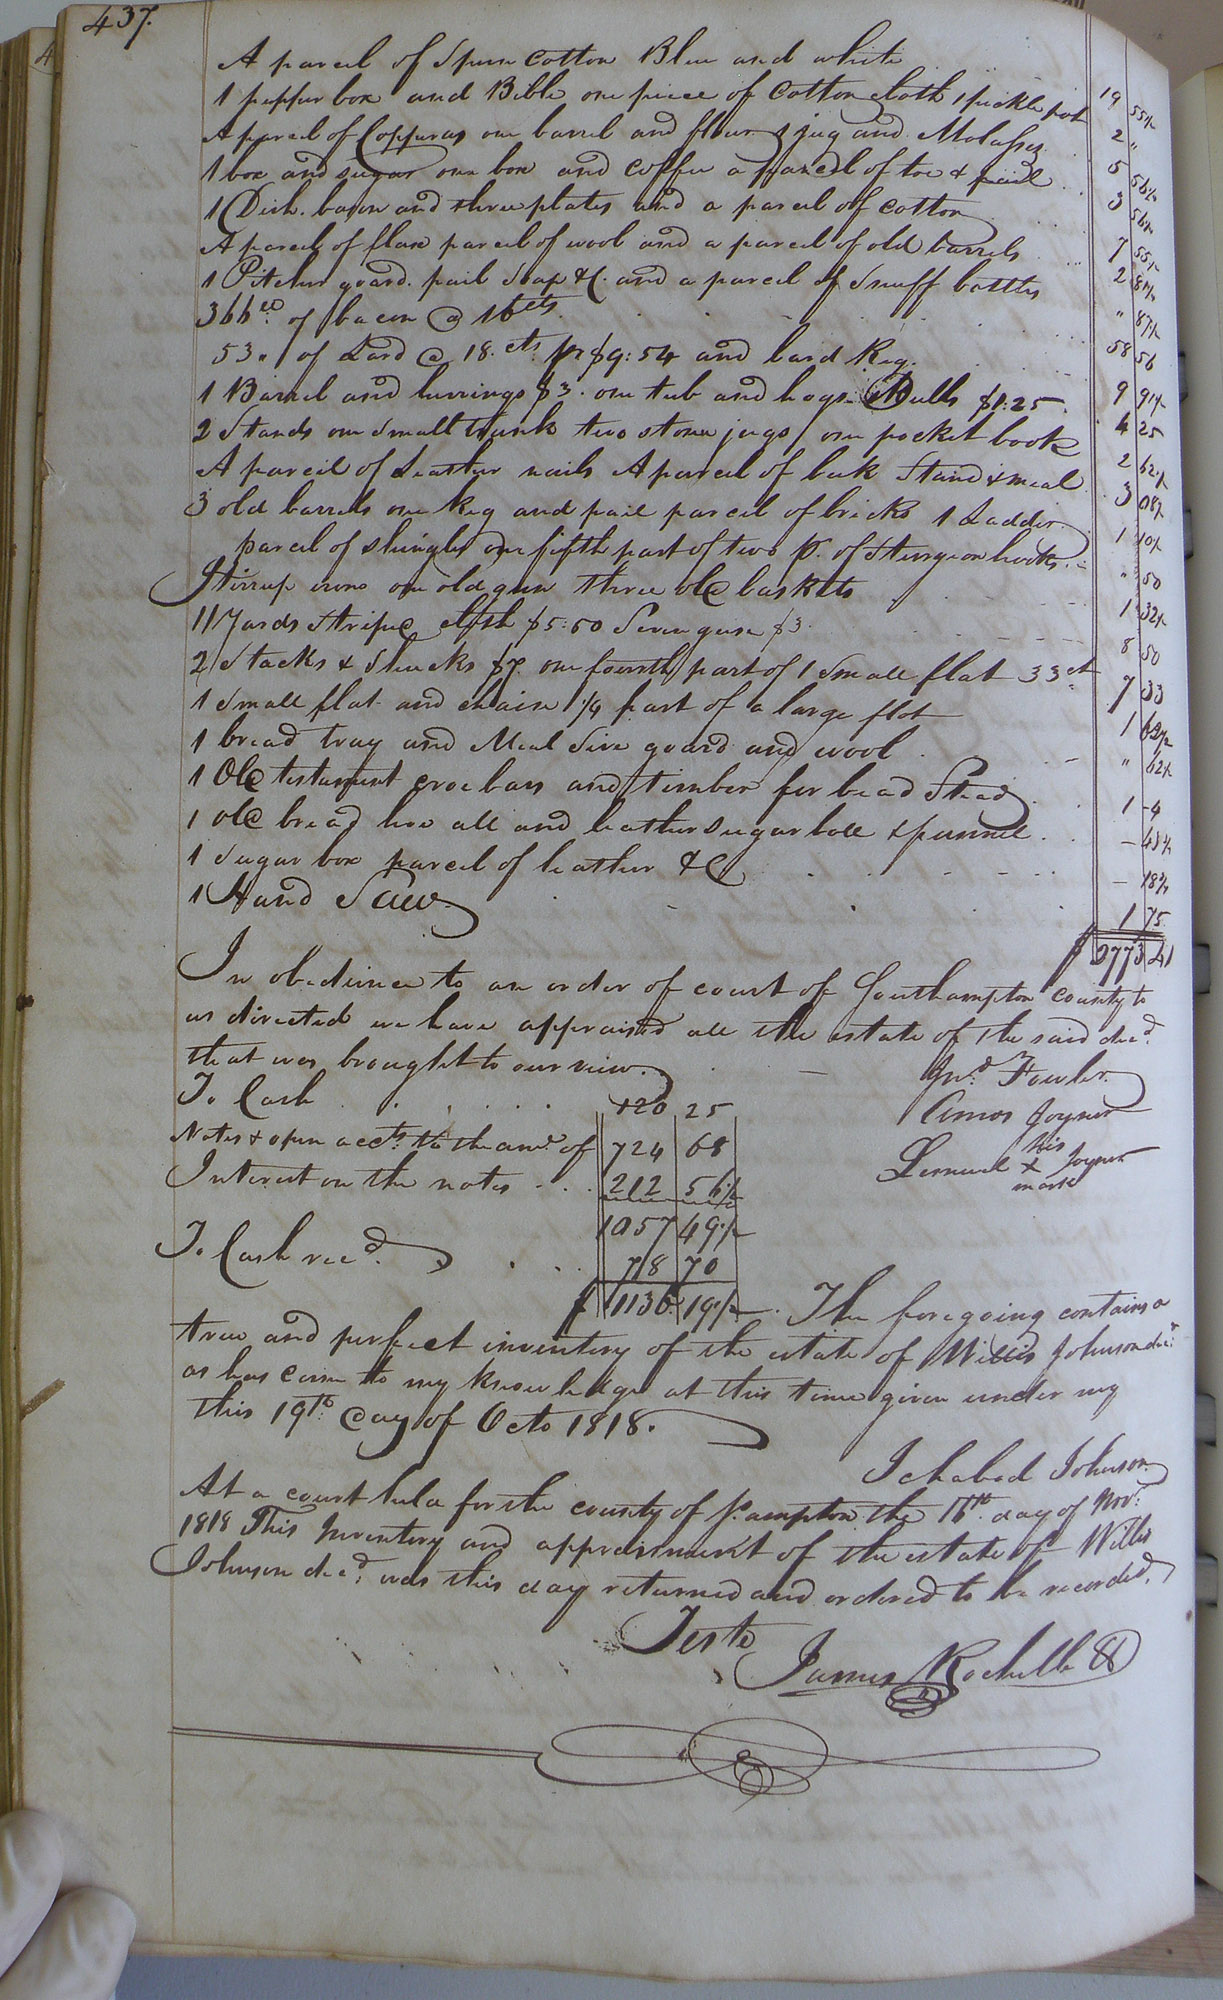 437.
A parcel of Spun Cotton Blue and white
1 pepper box and Bible one piece of Cotton cloth 1 pickle pot 19 55½
A parcel of Copperas one barrel and flour 1 jug and Molasses 2 "
1 box and sugar one box and coffee a parcel of toe & pail 5 56½
1 Dish bason and three plates and a parcel of cotton 3 56½
A parcel of flax parcel of wool and a parcel of old barrels 7 55½
1 Pitcher goard pail Soap &C. and a parcel of Snuff bottles 2 81½
366 lb of bacon @ 16 cts " 87½
53 " of Lard @ 18 cts pr $9:54 and lard Keg 58 56
1 Barrel and herrings $3. one tub and hogs $1:25 9 91½
2 Stands one Small trunk two stone jugs / one pocket book 4 25
A parcel of Leather nails A parcel of Stand & meal 2 62½
3 old barrels one Keg and pail parcel of bricks 1 Ladder 3 08½
parcel of shingles one fifth part of two p. of Sturgeon hooks 1 10½
Stirrup irons one old gun three old baskets " 50
11 Yards Stripe cloth $5:50 Seven geese $3 1 32½
2 Stacks & Shucks $7. one fourth part of 1 Small flat 33 ct 8 50
1 Small flat and chain ¼ part of a large flat 7 33
1 bread tray and Meal Sive goard and wool 1 62½
1 Old testament croe bars and timber for bead Stead " 62½
1 old bread hoe all and leather sugar bole & funnel 1 - 4
1 Sugar box parcel of leather &C - 48½
1 Hand Saw - 18¾
1 75
$ 2773 41
In obedience to an order of court of Southampton county to
us directed we have appraised all the estate of the said decd.
that was brought to our view. Jno. Fowler
To Cash 120 25 Amos Joyner
Notes & open accts. to the amt. of 724 68 his
Interest on the notes 212 56½ Lemuel x Joyner
mark
1057 49½
To Cash recd. 78 70
$ 1136 19½ The foregoing contains a
true and perfect inventory of the estate of Willis Johnson decd.
as has come to my knowledge at this time given under my
this 19th day of Octo 1818.
Ichabod Johnson
At a court held for the county of So.ampton the 16th day of Novr.
1818 This Inventory and appraisment of the estate of Willis
Johnson decd. was this day returned and ordered to be recorded.
Teste
James Rochelle